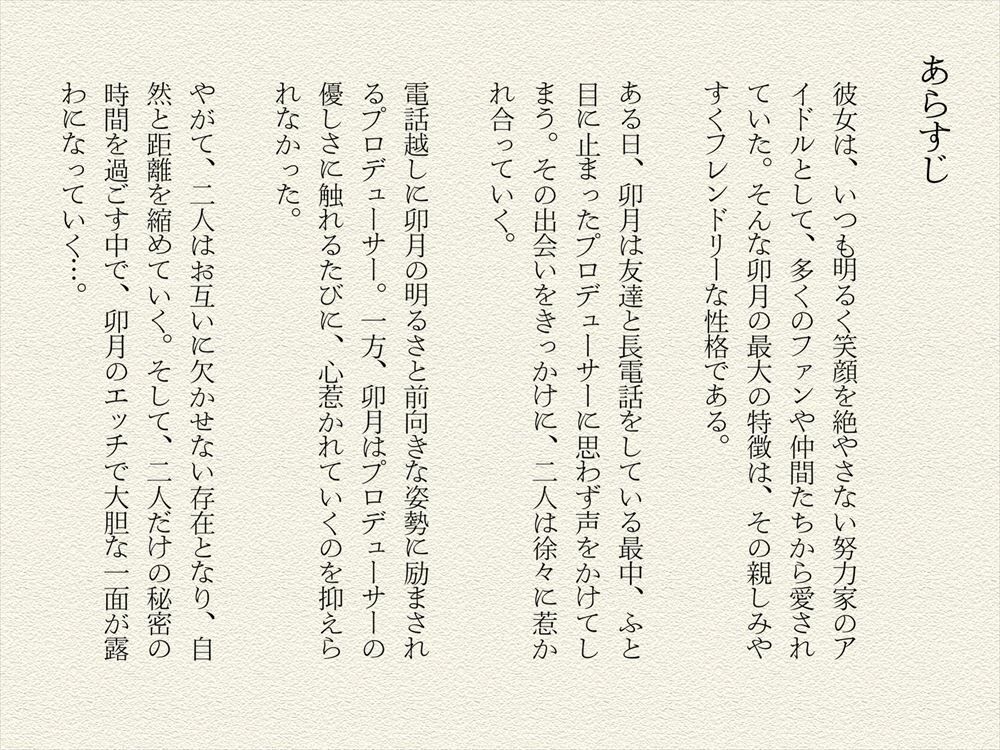 あらすじ
彼女は、いつも明るく笑顔を絶やさない努力家のア
イドルとして、多くのファンや仲間たちから愛され
ていた。そんな卯月の最大の特徴は、その親しみや
すくフレンドリーな性格である。
ある日、卯月は友達と長電話をしている最中、ふと
目に止まったプロデューサーに思わず声をかけてし
まう。その出会いをきっかけに、二人は徐々に惹か
れ合っていく。
電話越しに卯月の明るさと前向きな姿勢に励まされ
るプロデューサー。一方、卯月はプロデューサーの
優しさに触れるたびに、心惹かれていくのを抑えら
れなかった。
やがて、二人はお互いに欠かせない存在となり、自
然と距離を縮めていく。そして、二人だけの秘密の
時間を過ごす中で、卯月のエッチで大胆な一面が露
わになっていく…。